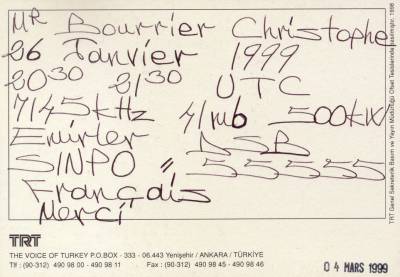 MR Bourrier Christophe
26 Janvier 1999
2030 2130 UTC
7145 kHz 41mb 500kW
Emirler DSB
SINPO = 55555
Français
Merci
TRT
THE VOICE OF TURKEY P.O.BOX - 333 - 06.443 Yenişehir / ANKARA / TÜRKİYE
Tlf : (90-312) 490 98 00 - 490 98 11 Fax : (90-312) 490 98 45 - 490 98 46
04 MARS 1999
TRT Genel Sekreterlik Basım ve Yayın Müdürlüğü Ofset Tesislerinde basılmıştır. 1998